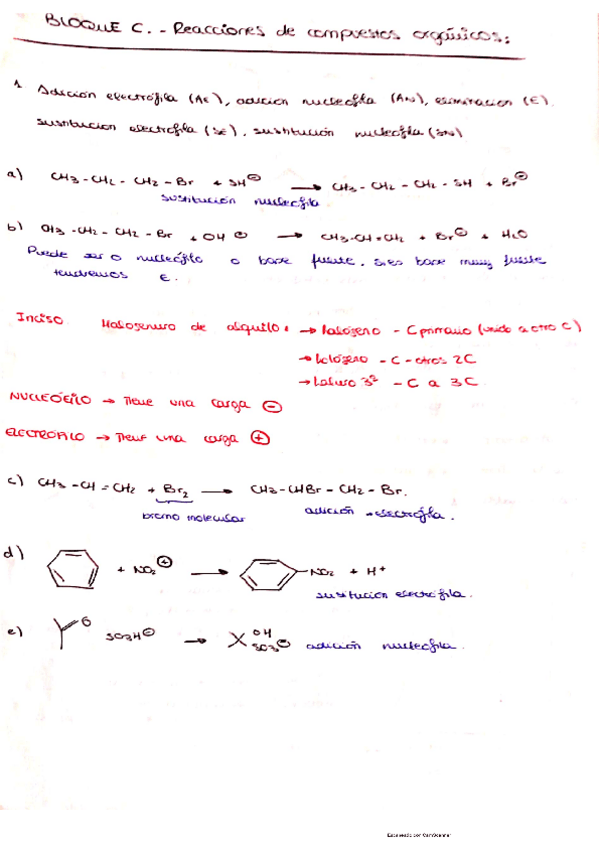 BLOQUE C. - Reacciones de compuestos orgánicos:
1. Adición electrófila (AE), adición nucleófila (AN), eliminación (E).
sustitución electrófila (SE), sustitución nucleófila (SN)
a) CH3 - CH2 - CH2 - Br + SH⊖ → CH3 - CH2 - CH2 - SH + Br⊖
sustitución nucleófila
b) CH3 - CH2 - CH2 - Br + OH⊖ → CH3-CH=CH2 + Br⊖ + H2O
Puede ser o nucleófilo o base fuerte. Si es base muy fuerte
tendremos E.
Inciso Halogenuro de alquilo: → halógeno - C primario (unido a otro C)
→ halógeno - C - otros 2C
→ haluro 3º - C a 3C
NUCLEÓFILO → Tiene una carga ⊖
ELECTRÓFILO → Tiene una carga ⊕
c) CH3 - CH = CH2 + Br2 → CH3 - CHBr - CH2 - Br.
bromo molecular adición electrófila.
d) + NO2⊕ → NO2 + H+
sustitución electrófila.
e) O SO3H⊖ → OH SO3⊖ adición nucleófila.
Escaneado con CamScanner